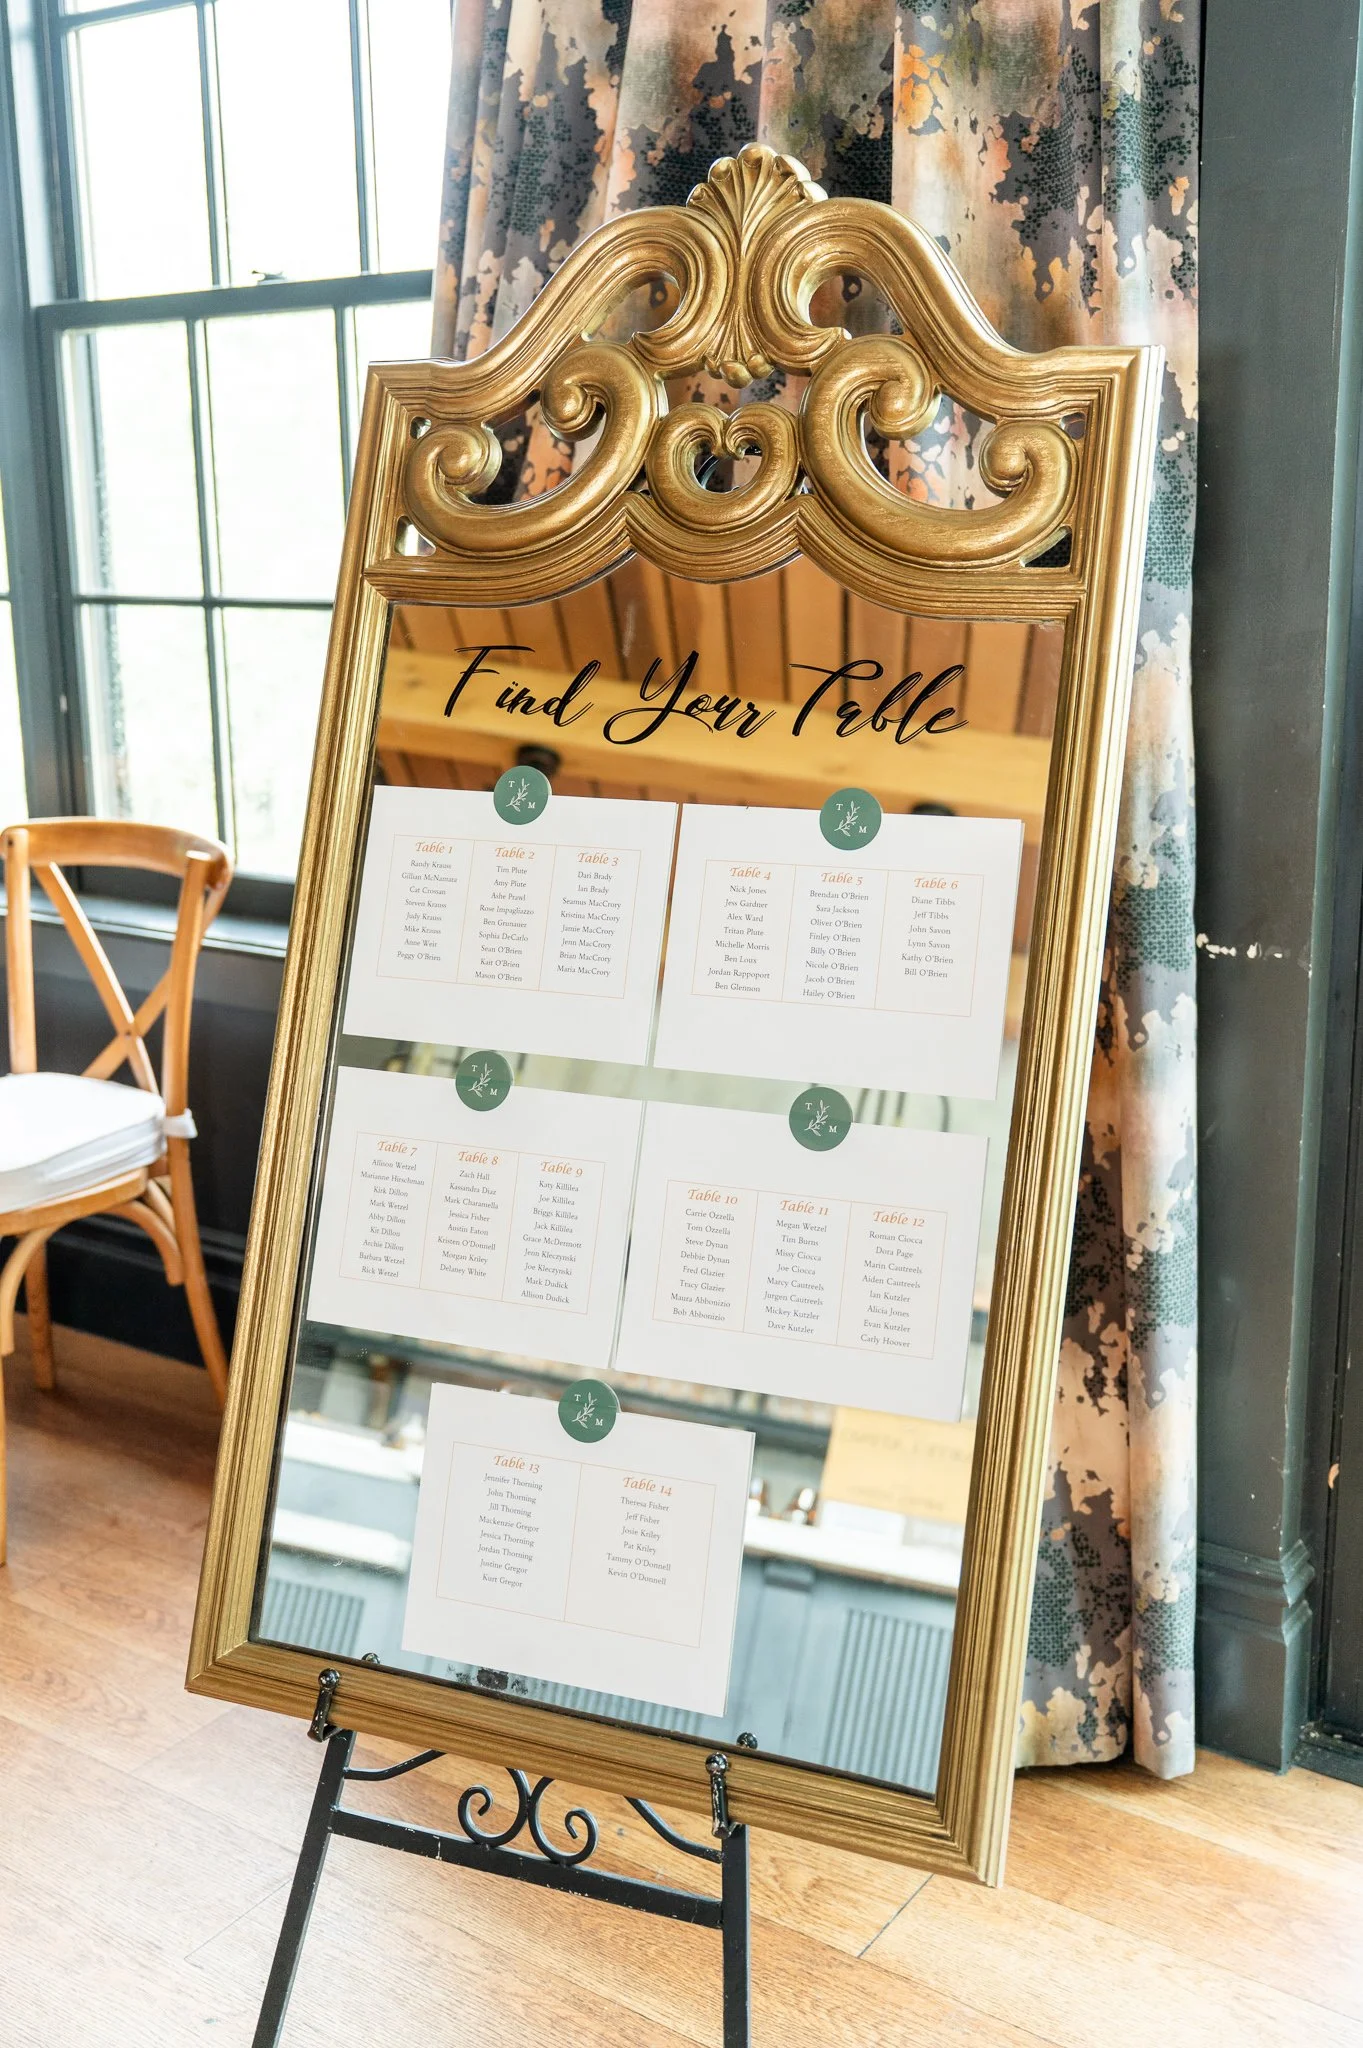 Find Your Table
T M
Table 1
Randy Krauss
Gillian McNamara
Cat Crossan
Steven Krauss
Judy Krauss
Mike Krauss
Anne Weir
Peggy O'Brien
Table 2
Tim Plute
Amy Plute
Ashe Prawl
Rose Impagliazzo
Ben Grunauer
Sophia DeCarlo
Sean O'Brien
Kait O'Brien
Mason O'Brien
Table 3
Dari Brady
Ian Brady
Seamus MacCrory
Kristina MacCrory
Jamie MacCrory
Jenn MacCrory
Brian MacCrory
Maria MacCrory
T M
Table 4
Nick Jones
Jess Gardner
Alex Ward
Tritan Plute
Michelle Morris
Ben Loux
Jordan Rappoport
Ben Glennon
Table 5
Brendan O'Brien
Sara Jackson
Oliver O'Brien
Finley O'Brien
Billy O'Brien
Nicole O'Brien
Jacob O'Brien
Hailey O'Brien
Table 6
Diane Tibbs
Jeff Tibbs
John Savon
Lynn Savon
Kathy O'Brien
Bill O'Brien
T M
Table 7
Allison Wetzel
Marianne Hirschman
Kirk Dillon
Mark Wetzel
Abby Dillon
Kit Dillon
Archie Dillon
Barbara Wetzel
Rick Wetzel
Table 8
Zach Hall
Kassandra Diaz
Mark Charamella
Jessica Fisher
Austin Eaton
Kristen O'Donnell
Morgan Kriley
Delaney White
Table 9
Katy Killilea
Joe Killilea
Briggs Killilea
Jack Killilea
Grace McDermott
Jenn Kleczynski
Joe Kleczynski
Mark Dudick
Allison Dudick
T M
Table 10
Carrie Ozzella
Tom Ozzella
Steve Dynan
Debbie Dynan
Fred Glazier
Tracy Glazier
Maura Abbonizio
Bob Abbonizio
Table 11
Megan Wetzel
Tim Burns
Missy Ciocca
Joe Ciocca
Marcy Cautreels
Jurgen Cautreels
Mickey Kutzler
Dave Kutzler
Table 12
Roman Ciocca
Dora Page
Marin Cautreels
Aiden Cautreels
Ian Kutzler
Alicia Jones
Evan Kutzler
Carly Hoover
T M
Table 13
Jennifer Thorning
John Thorning
Jill Thorning
Mackenzie Gregor
Jessica Thorning
Jordan Thorning
Justine Gregor
Kurt Gregor
Table 14
Theresa Fisher
Jeff Fisher
Josie Kriley
Pat Kriley
Tammy O'Donnell
Kevin O'Donnell